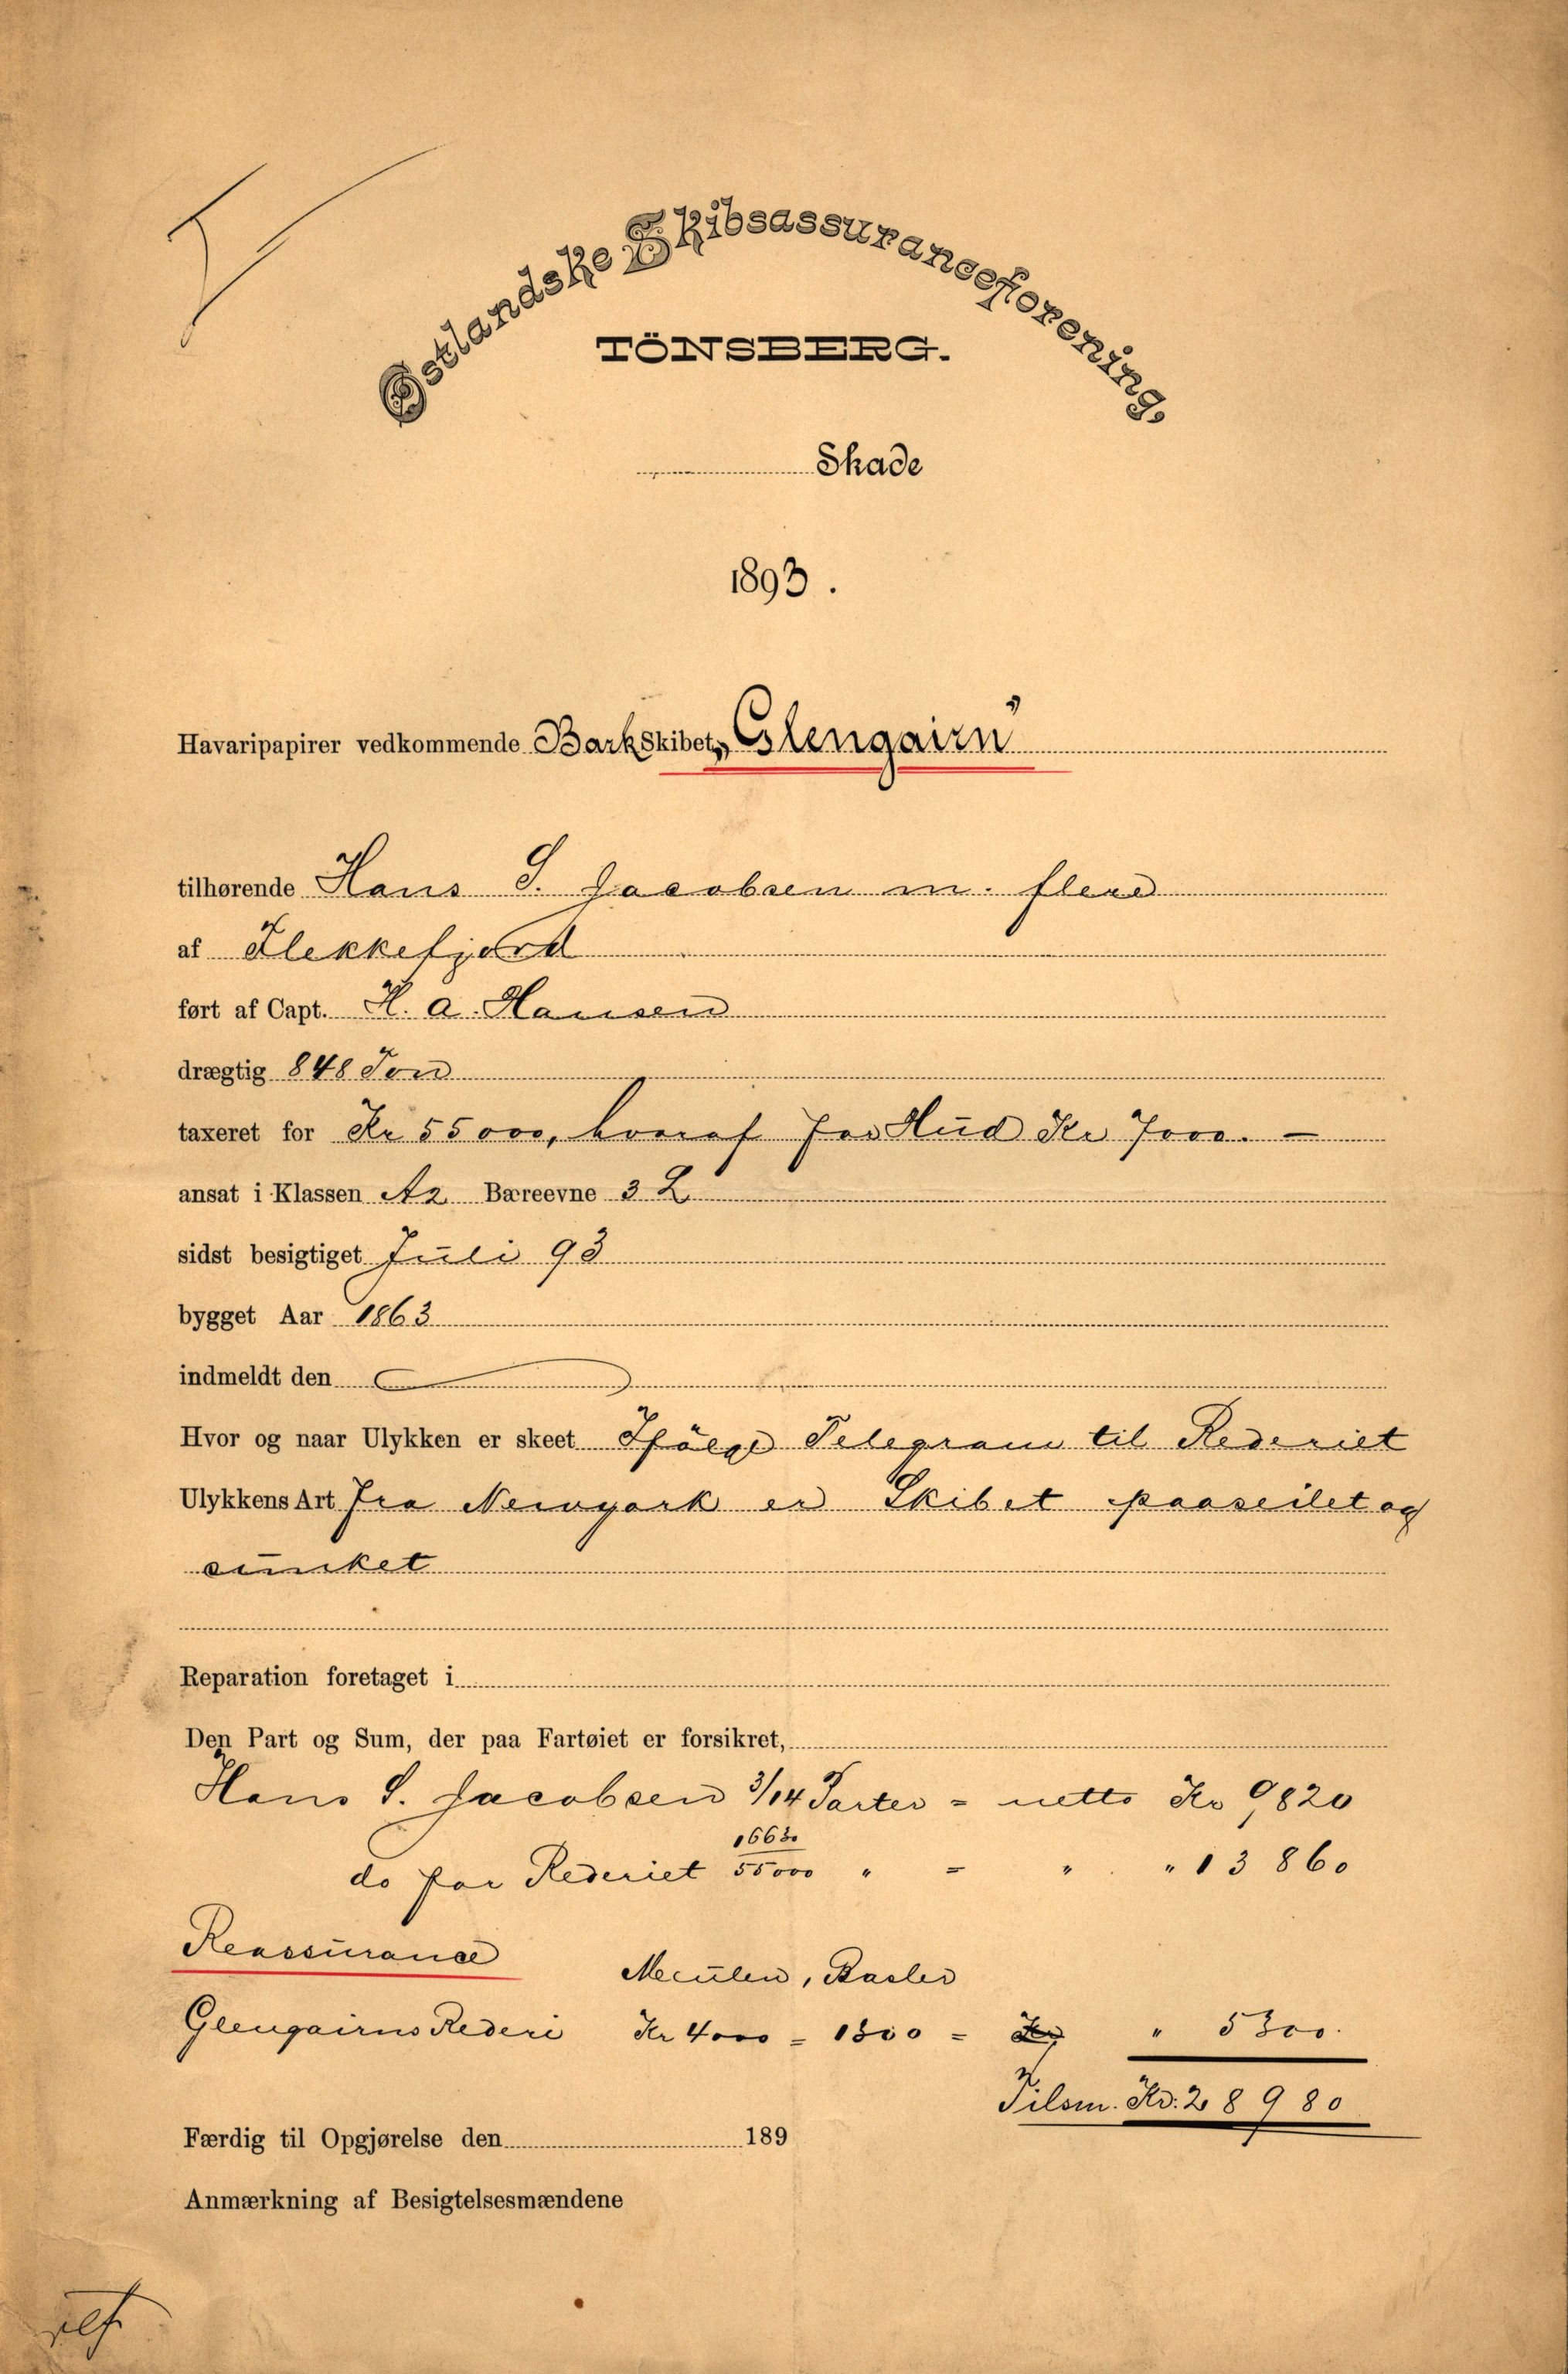 Østlandske Skibsassuranceforening,
TÖNSBERG.
Skade
1893.
Havaripapirer vedkommende Barkskibet „Glengairn"
tilhørende Hans S. Jacobsen m. flere
af Flekkefjord
ført af Capt. H. A. Hansen
drægtig 848 Ton
taxeret for Kr 55000, hvoraf for Hud Kr 7000. —
ansat i Klassen A2 Bæreevne 3 L
sidst besigtiget Juli 93
bygget Aar 1863
indmeldt den
Hvor og naar Ulykken er skeet Ifölge Telegram til Rederiet
Ulykkens Art fra Newyork er Skibet paaseilet og
sunket
Reparation foretaget i
Den Part og Sum, der paa Fartøiet er forsikret,
Hans S. Jacobsen 3/14 Parter = netto Kr 9820
do for Rederiet 16630/55000 " = " " 13 860
Reassurance
Meculen, Basler
Glengairns Rederi Kr 4000 = 1300 = Kr " 5300.
Tilsm. Kr. 28980
Færdig til Opgjørelse den 189
Anmærkning af Besigtelsesmændene